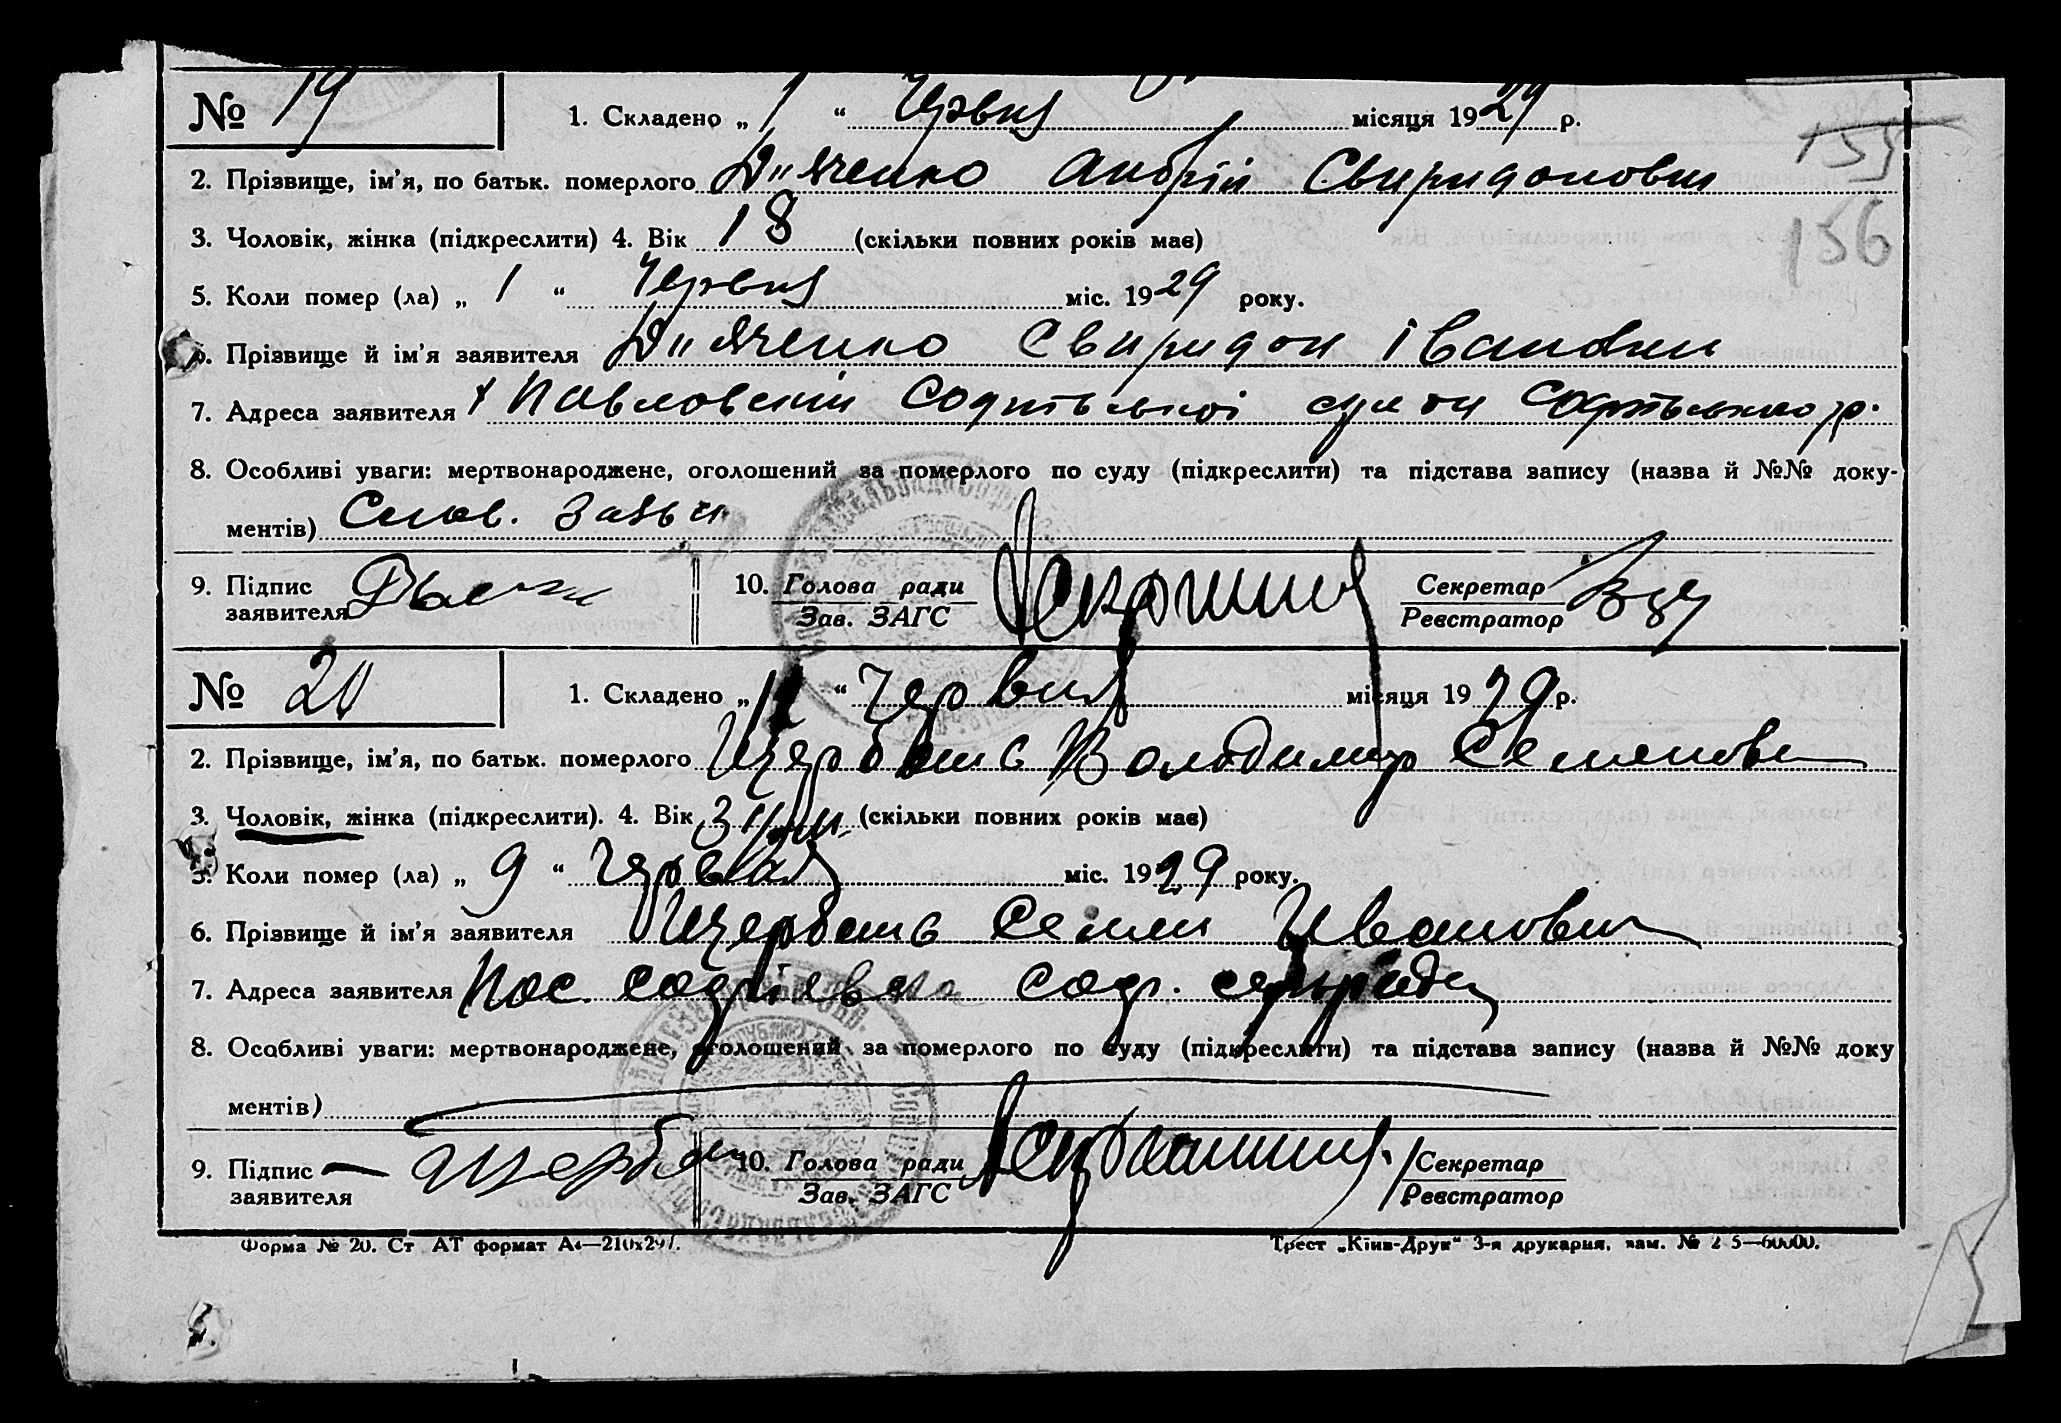 № 19 1. Складено „ 1 “ Червня місяця 1929 р.
155
2. Прізвище, ім’я, по батьк. померлого Дияченко Андрій Свиридонович
3. Чоловік, жінка (підкреслити) 4. Вік 18 (скільки повних років має)
156
5. Коли помер (ла) „ 1 “ Червня міс. 1929 року.
6. Прізвище й ім’я заявителя Дияченко Свиридон Іванович
7. Адреса заявителя
8. Особливі уваги: мертвонароджене, оголошений за померлого по суду (підкреслити) та підстава запису (назва й №№ доку-
ментів) Слов. заяви
9. Підпис заявителя 10. Голова ради Секретар
Зав. ЗАГС Реєстратор
№ 20 1. Складено „ “ Червня місяця 1929 р.
2. Прізвище, ім’я, по батьк. померлого Щербань Володимир Семенови
3. Чоловік, жінка (підкреслити). 4. Вік 3 (скільки повних років має)
5. Коли помер (ла) „ 9 “ Червня міс. 1929 року.
6. Прізвище й ім’я заявителя Щербань Семен Иванович
7. Адреса заявителя Пос. сельради
8. Особливі уваги: мертвонароджене, оголошений за померлого по суду (підкреслити) та підстава запису (назва й №№ доку
ментів)
9. Підпис заявителя Щербань 10. Голова ради Секретар
Зав. ЗАГС Реєстратор
Форма № 20. Ст АТ формат А4—210х297. Трест „Київ-Друк“ 3-я друкарня, зам. №